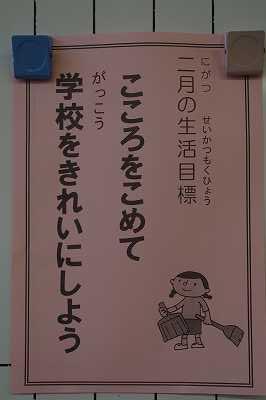 二月の生活目標
にがつ
せいかつもくひょう
こころをこめて
学校をきれいにしよう
がっこう